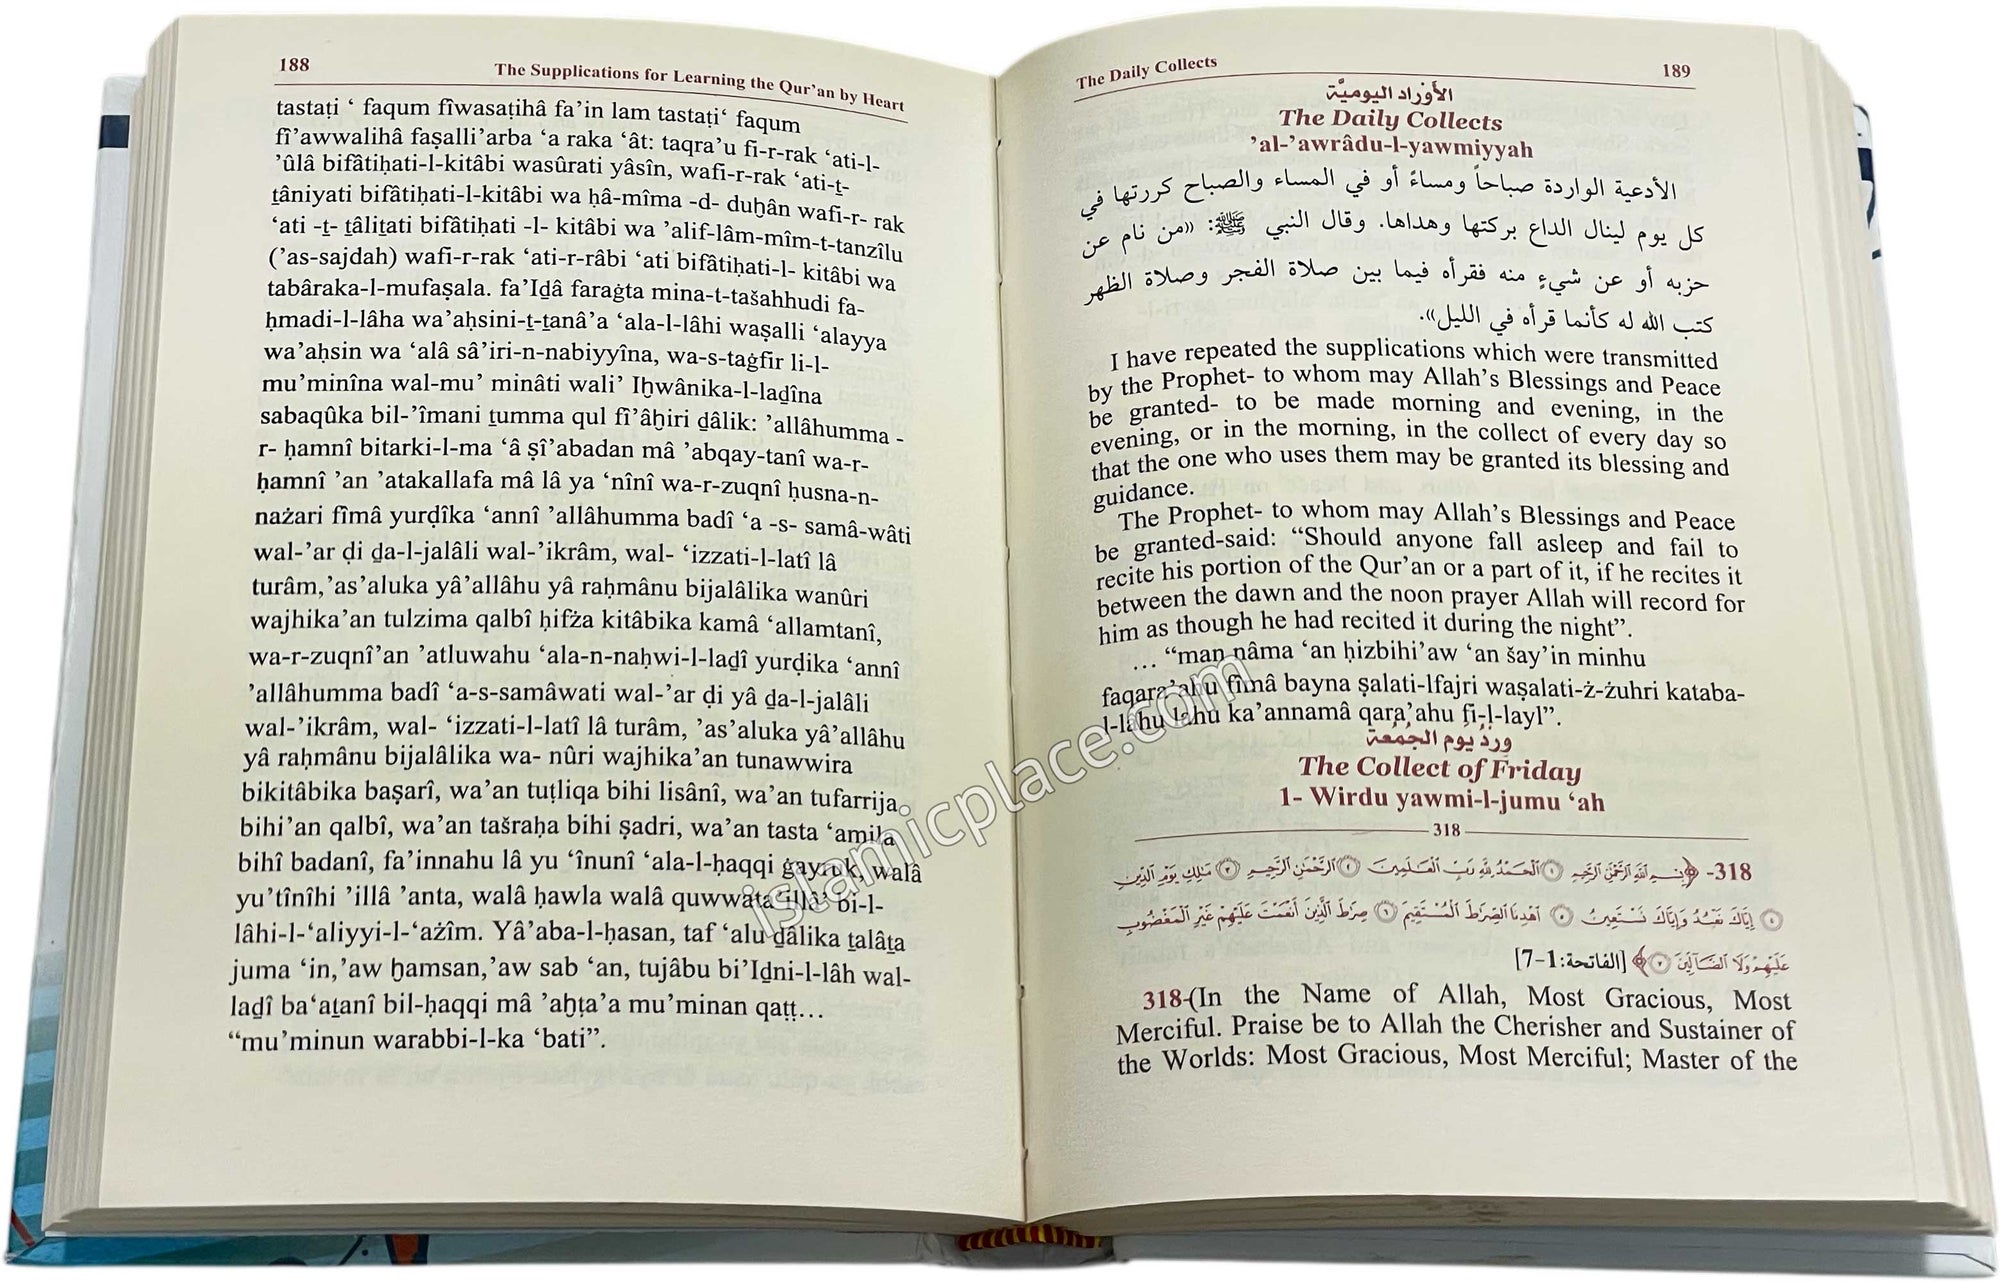 188
The Supplications for Learning the Qur’an by Heart
tastaṭi ‘ faqum fîwasaṭihâ fa’in lam tastaṭi‘ faqum
fî’awwalihâ faṣalli’arba ‘a raka ‘ât: taqra’u fi-r-rak ‘ati-l-
’ûlâ bifâtiḥati-l-kitâbi wasûrati yâsîn, wafi-r-rak ‘ati-ṯ-
ṯâniyati bifâtiḥati-l-kitâbi wa ḥâ-mîma -d- duḫân wafi-r- rak
‘ati -ṯ- ṯâliṯati bifâtiḥati -l- kitâbi wa ’alif-lâm-mîm-t-tanzîlu
(’as-sajdah) wafi-r-rak ‘ati-r-râbi ‘ati bifâtiḥati-l- kitâbi wa
tabâraka-l-mufaṣala. fa’Iḏâ faraġta mina-t-tašahhudi fa-
ḥmadi-l-lâha wa’aḥsini-ṯ-ṯanâ’a ‘ala-l-lâhi waṣalli ‘alayya
wa’aḥsin wa ‘alâ sâ’iri-n-nabiyyîna, wa-s-taġfir li-l-
mu’minîna wal-mu’ minâti wali’ Iḫwânika-l-laḏîna
sabaqûka bil-’îmani ṯumma qul fî’âḫiri ḏâlik: ’allâhumma -
r- ḥamnî bitarki-l-ma ‘â ṣî’abadan mâ ’abqay-tanî wa-r-
ḥamnî ’an ’atakallafa mâ lâ ya ‘nînî wa-r-zuqnî ḥusna-n-
nażari fîmâ yurḍîka ‘annî ’allâhumma badî ‘a -s- samâ-wâti
wal-’ar ḍi ḏa-l-jalâli wal-’ikrâm, wal- ‘izzati-l-latî lâ
turâm,’as’aluka yâ’allâhu yâ raḥmânu bijalâlika wanûri
wajhika’an tulzima qalbî ḥifża kitâbika kamâ ‘allamtanî,
wa-r-zuqnî’an ’atluwahu ‘ala-n-naḥwi-l-laḏî yurḍika ‘annî
’allâhumma badî ‘a-s-samâwati wal-’ar ḍi yâ ḏa-l-jalâli
wal-’ikrâm, wal- ‘izzati-l-latî lâ turâm, ’as’aluka yâ’allâhu
yâ raḥmânu bijalâlika wa- nûri wajhika’an tunawwira
bikitâbika baṣarî, wa’an tuṭliqa bihi lisânî, wa’an tufarrija
bihi’an qalbî, wa’an tašraḥa bihi ṣadri, wa’an tasta ‘amila
bihî badanî, fa’innahu lâ yu ‘înunî ‘ala-l-ḥaqqi ġayruk, walâ
yu’tînîhi ’illâ ’anta, walâ ḥawla walâ quwwata illâ’ bi-l-
lâhi-l-‘aliyyi-l-‘ażîm. Yâ’aba-l-ḥasan, taf ‘alu ḏâlika ṯalâṯa
juma ‘in,’aw ḫamsan,’aw sab ‘an, tujâbu bi’Iḏni-l-lâh wal-
laḏî ba‘aṯanî bil-ḥaqqi mâ ’aḫṭa’a mu’minan qaṭṭ…
“mu’minun warabbi-l-ka ‘bati”.
The Daily Collects
189
الأوْراد اليوميَّة
The Daily Collects
’al-’awrâdu-l-yawmiyyah
الأدعية الواردة صباحاً ومساءً أو في المساء والصباح كررتها في
كل يوم لينال الداع بركتها وهداها. وقال النبي ﷺ: «من نام عن
حزبه أو عن شيءٍ منه فقرأه فيما بين صلاة الفجر وصلاة الظهر
كتب الله له كأنما قرأه في الليل».
I have repeated the supplications which were transmitted
by the Prophet- to whom may Allah’s Blessings and Peace
be granted- to be made morning and evening, in the
evening, or in the morning, in the collect of every day so
that the one who uses them may be granted its blessing and
guidance.
The Prophet- to whom may Allah’s Blessings and Peace
be granted-said: “Should anyone fall asleep and fail to
recite his portion of the Qur’an or a part of it, if he recites it
between the dawn and the noon prayer Allah will record for
him as though he had recited it during the night”.
… “man nâma ‘an ḥizbihi’aw ‘an šay’in minhu
faqara’ahu fîmâ bayna ṣalati-lfajri waṣalati-ż-żuhri kataba-
l-lâhu lahu ka’annamâ qara’ahu fi-l-layl”.
وِرْدُ يوم الجمعة
The Collect of Friday
1- Wirdu yawmi-l-jumu ‘ah
318
318- ﴿بِسْمِ اللَّهِ الرَّحْمَٰنِ الرَّحِيمِ ۝١ الْحَمْدُ لِلَّهِ رَبِّ الْعَالَمِينَ ۝٢ الرَّحْمَٰنِ الرَّحِيمِ ۝٣ مَالِكِ يَوْمِ الدِّينِ
۝٤ إِيَّاكَ نَعْبُدُ وَإِيَّاكَ نَسْتَعِينُ ۝٥ اهْدِنَا الصِّرَاطَ الْمُسْتَقِيمَ ۝٦ صِرَاطَ الَّذِينَ أَنْعَمْتَ عَلَيْهِمْ غَيْرِ الْمَغْضُوبِ
عَلَيْهِمْ وَلَا الضَّالِّينَ ۝٧﴾ [الفاتحة:1-7]
318-(In the Name of Allah, Most Gracious, Most
Merciful. Praise be to Allah the Cherisher and Sustainer of
the Worlds: Most Gracious, Most Merciful; Master of the
islamicplace.com